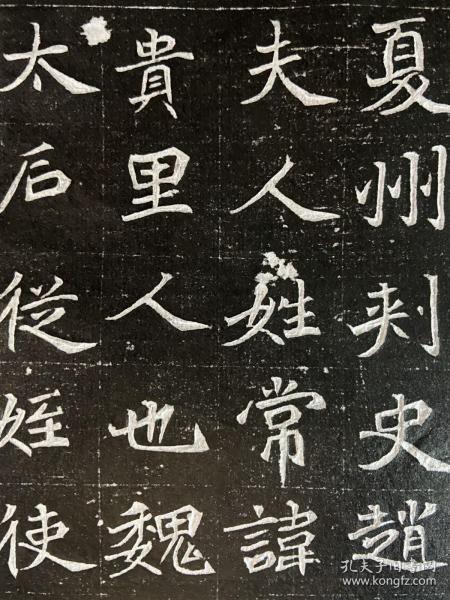 夏州刾史趙
夫人姓常諱
貴里人也魏
太后從姪使
孔夫子旧书网
www.kongfz.com